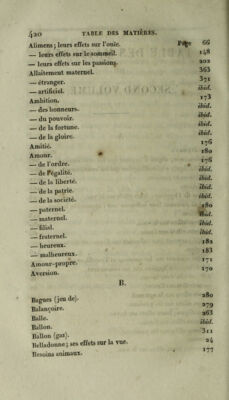 420 TABLE DES MATIÈRES.
Alimens; leurs effets sur l'ouie. Page 66
— leurs effets sur le sommeil. 148
— leurs effets sur les passions. 202
Allaitement maternel. 363
— étranger. 371
— artificiel. ibid.
Ambition. 173
— des honneurs. ibid.
— du pouvoir. ibid.
— de la fortune. ibid.
— de la gloire. ibid.
Amitié. 176
Amour. 180
— de l'ordre. 176
— de l'égalité. ibid.
— de la liberté. ibid.
— de la patrie. ibid.
— de la société. ibid.
— paternel. 180
— maternel. ibid.
— filial. ibid.
— fraternel. ibid.
— heureux. 182
— malheureux. 183
Amour-propre. 171
Aversion. 170
B.
Bagues (jeu de). 280
Balançoire. 279
Balle. 263
Ballon. ibid.
Ballon (gaz). 311
Belladonne; ses effets sur la vue. 24
Besoins animaux. 177